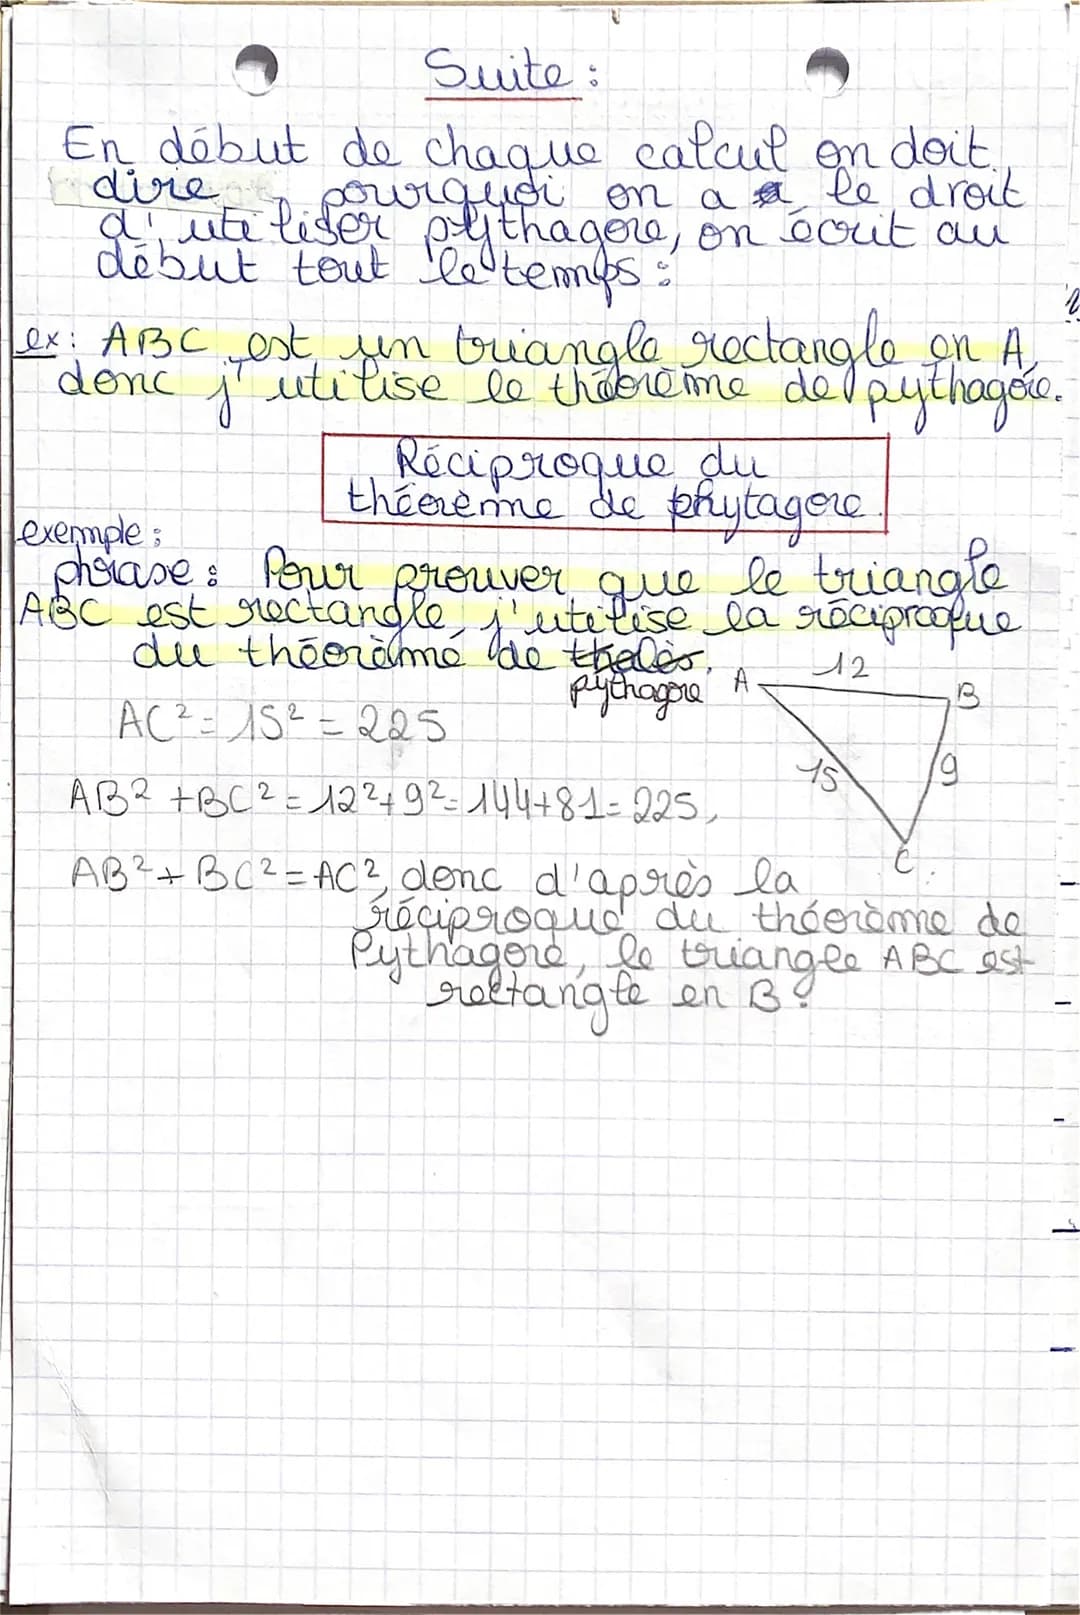 Suite :
En début de chaque calcul on doit
dire pourquoi on a le droit
d'utiliser pythagore, on écrit au
début tout le temps :
ex : ABC est un triangle rectangle en A,
donc j'utilise le théorème de pythagore.
Réciproque du
théorème de phytagore.
exemple :
phrase : Pour prouver que le triangle
ABC est rectangle, j'utilise la réciproque
du théorème de thalès.
pythagore
A 12 B
AC² = 15² = 225
15 9
AB² + BC² = 12² + 9² = 144 + 81 = 225,
C
AB² + BC² = AC², donc d'après la
réciproque du théorème de
Pythagore, le triangle ABC est
rectangle en B.